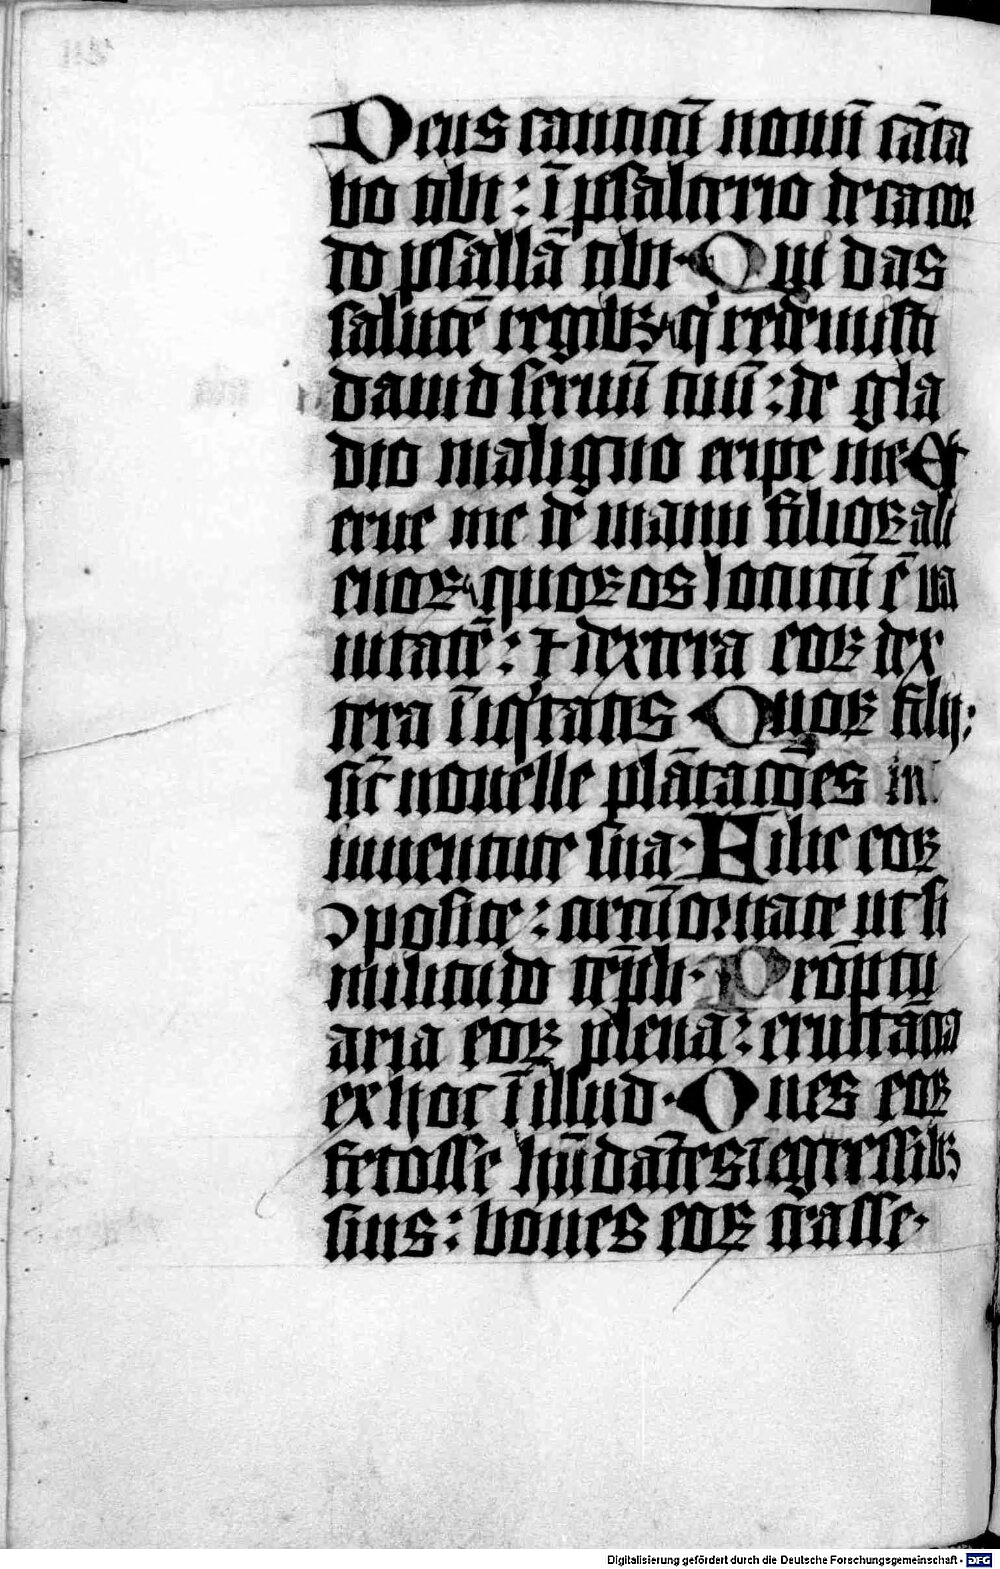 Deus canticū nouū cāta
bo tibi : ī psalterio decacor
do psallā tibi · Qui das
salutē regibꝫ q̇ redemisti
dauid seruū tuū : de gla
dio maligno eripe me Et
erue me de manu filioꝝ ali
enoꝝ quoꝝ os locutū ē va
nitatē : ⁊ dextera eoꝝ dex
tera īiq̇tatis Quoꝝ filij :
sic̄ nouelle plātacōes in
iuuentute sua · Filie eoꝝ
ꝯposite : circūornate ut si
militudo tēpli · Prōptu
aria eoꝝ plena : eructātia
ex hoc ī illud · Oues eoꝝ
fetosse hūdātes ī egressibꝫ
suis : boues eoꝝ crasse ·
Digitalisierung gefördert durch die Deutsche Forschungsgemeinschaft - DFG